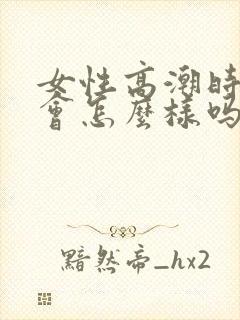 女性高潮時
會怎麼樣嗎
黯然帝_hx2